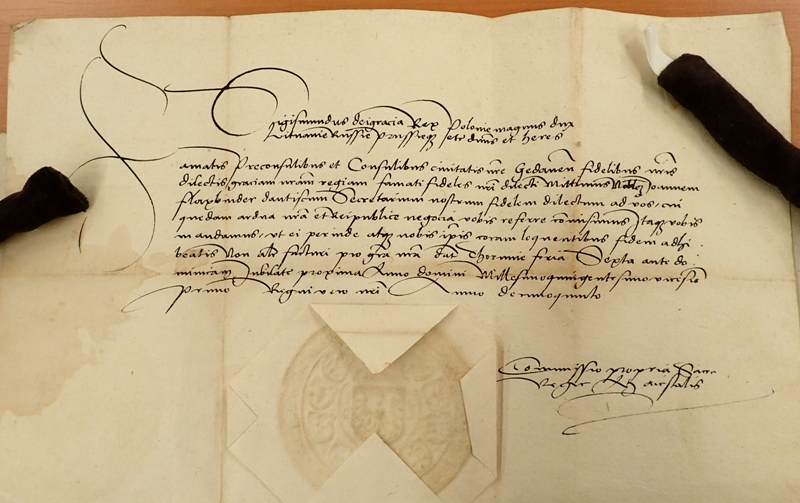 Sigismundus dei gracia Rex Polonie magnus dux
Lituanie Russie Prussieq etc dnus et heres
amatis Preconsulibus et Consulibus civitatis nre Gedanen fidelibus nris
dilectis graciam nram regiam famati fideles nri dilecti Mittimus Joannem
flaxbinder dantiscum Secretarium nostrum fidelem dilectum ad vos, cui
quedam ardua nra et Reipublice negocia vobis referre comisimus Itaq vobis
mandamus, ut ei perinde atq nobis ipis coram loquentibus fidem adhi
beatis Non alr facturi pro gra nra dat Thorunie feria Sexta ante do
minicam Jubilate proxima Anno domini Millesimoquingentesimo vicesio
Primo Regni vero nri Anno decimoquinto
Commissio propria Sacre
Regie Maiestatis